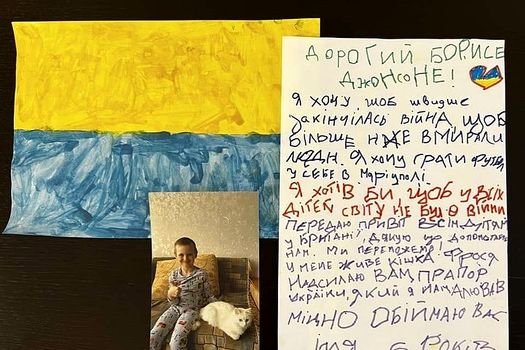 ДОРОГИЙ БОРИСЕ
ДЖОНСОНЕ!
Я ХОЧУ, ЩОБ ШВИДШЕ
ЗАКІНЧИЛАСЬ ВІЙНА, ЩОБ
БІЛЬШЕ НЕ ВМИРАЛИ
ЛЮДИ. Я ХОЧУ ГРАТИ
У СЕБЕ В МАРІУПОЛІ.
Я ХОТІВ БИ, ЩОБ У ВСІХ
ДІТЕЙ СВІТУ НЕ БУЛО ВІЙНИ
ПЕРЕДАЮ ПРИВІТ ВСІМ ДІТЯМ
У БРИТАНІЇ, ДЯКУЮ
НАМ. МИ ПЕРЕМОЖЕМ!
У МЕНЕ ЖИВЕ КІШКА ФРОСЯ
НАДСИЛАЮ ВАМ, ПРАПОР
УКРАЇНИ, ЯКИЙ Я НАМАЛЮВАВ
МІЦНО ОБІЙМАЮ ВАС
ІЛЛЯ 6 РОКІВ